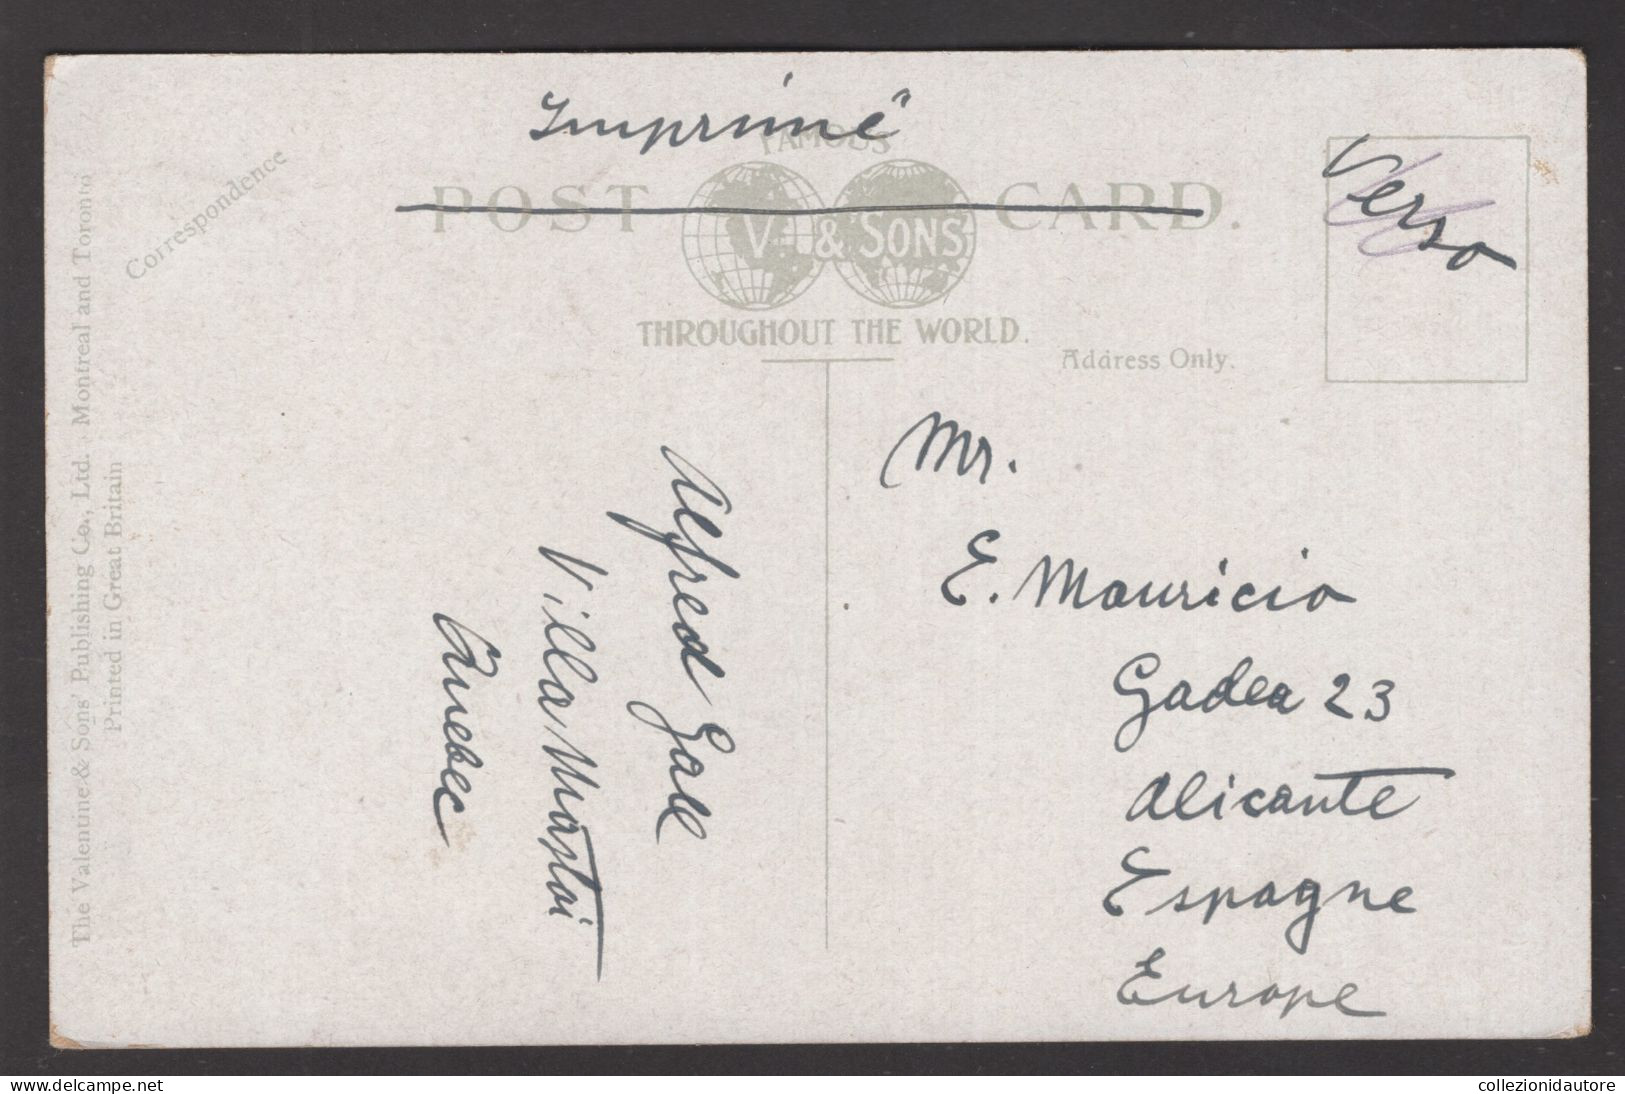 Imprimé
Verso
FAMOUS
POST CARD.
V. & SONS
THROUGHOUT THE WORLD.
Correspondence
Address Only.
The Valentine & Sons' Publishing Co., Ltd. Montreal and Toronto
Printed in Great Britain
Alfred
Villa
Quebec
Mr.
E. Mauricio
Gadea 23
Alicante
Espagne
Europe
delcampe.net
collezionidautore